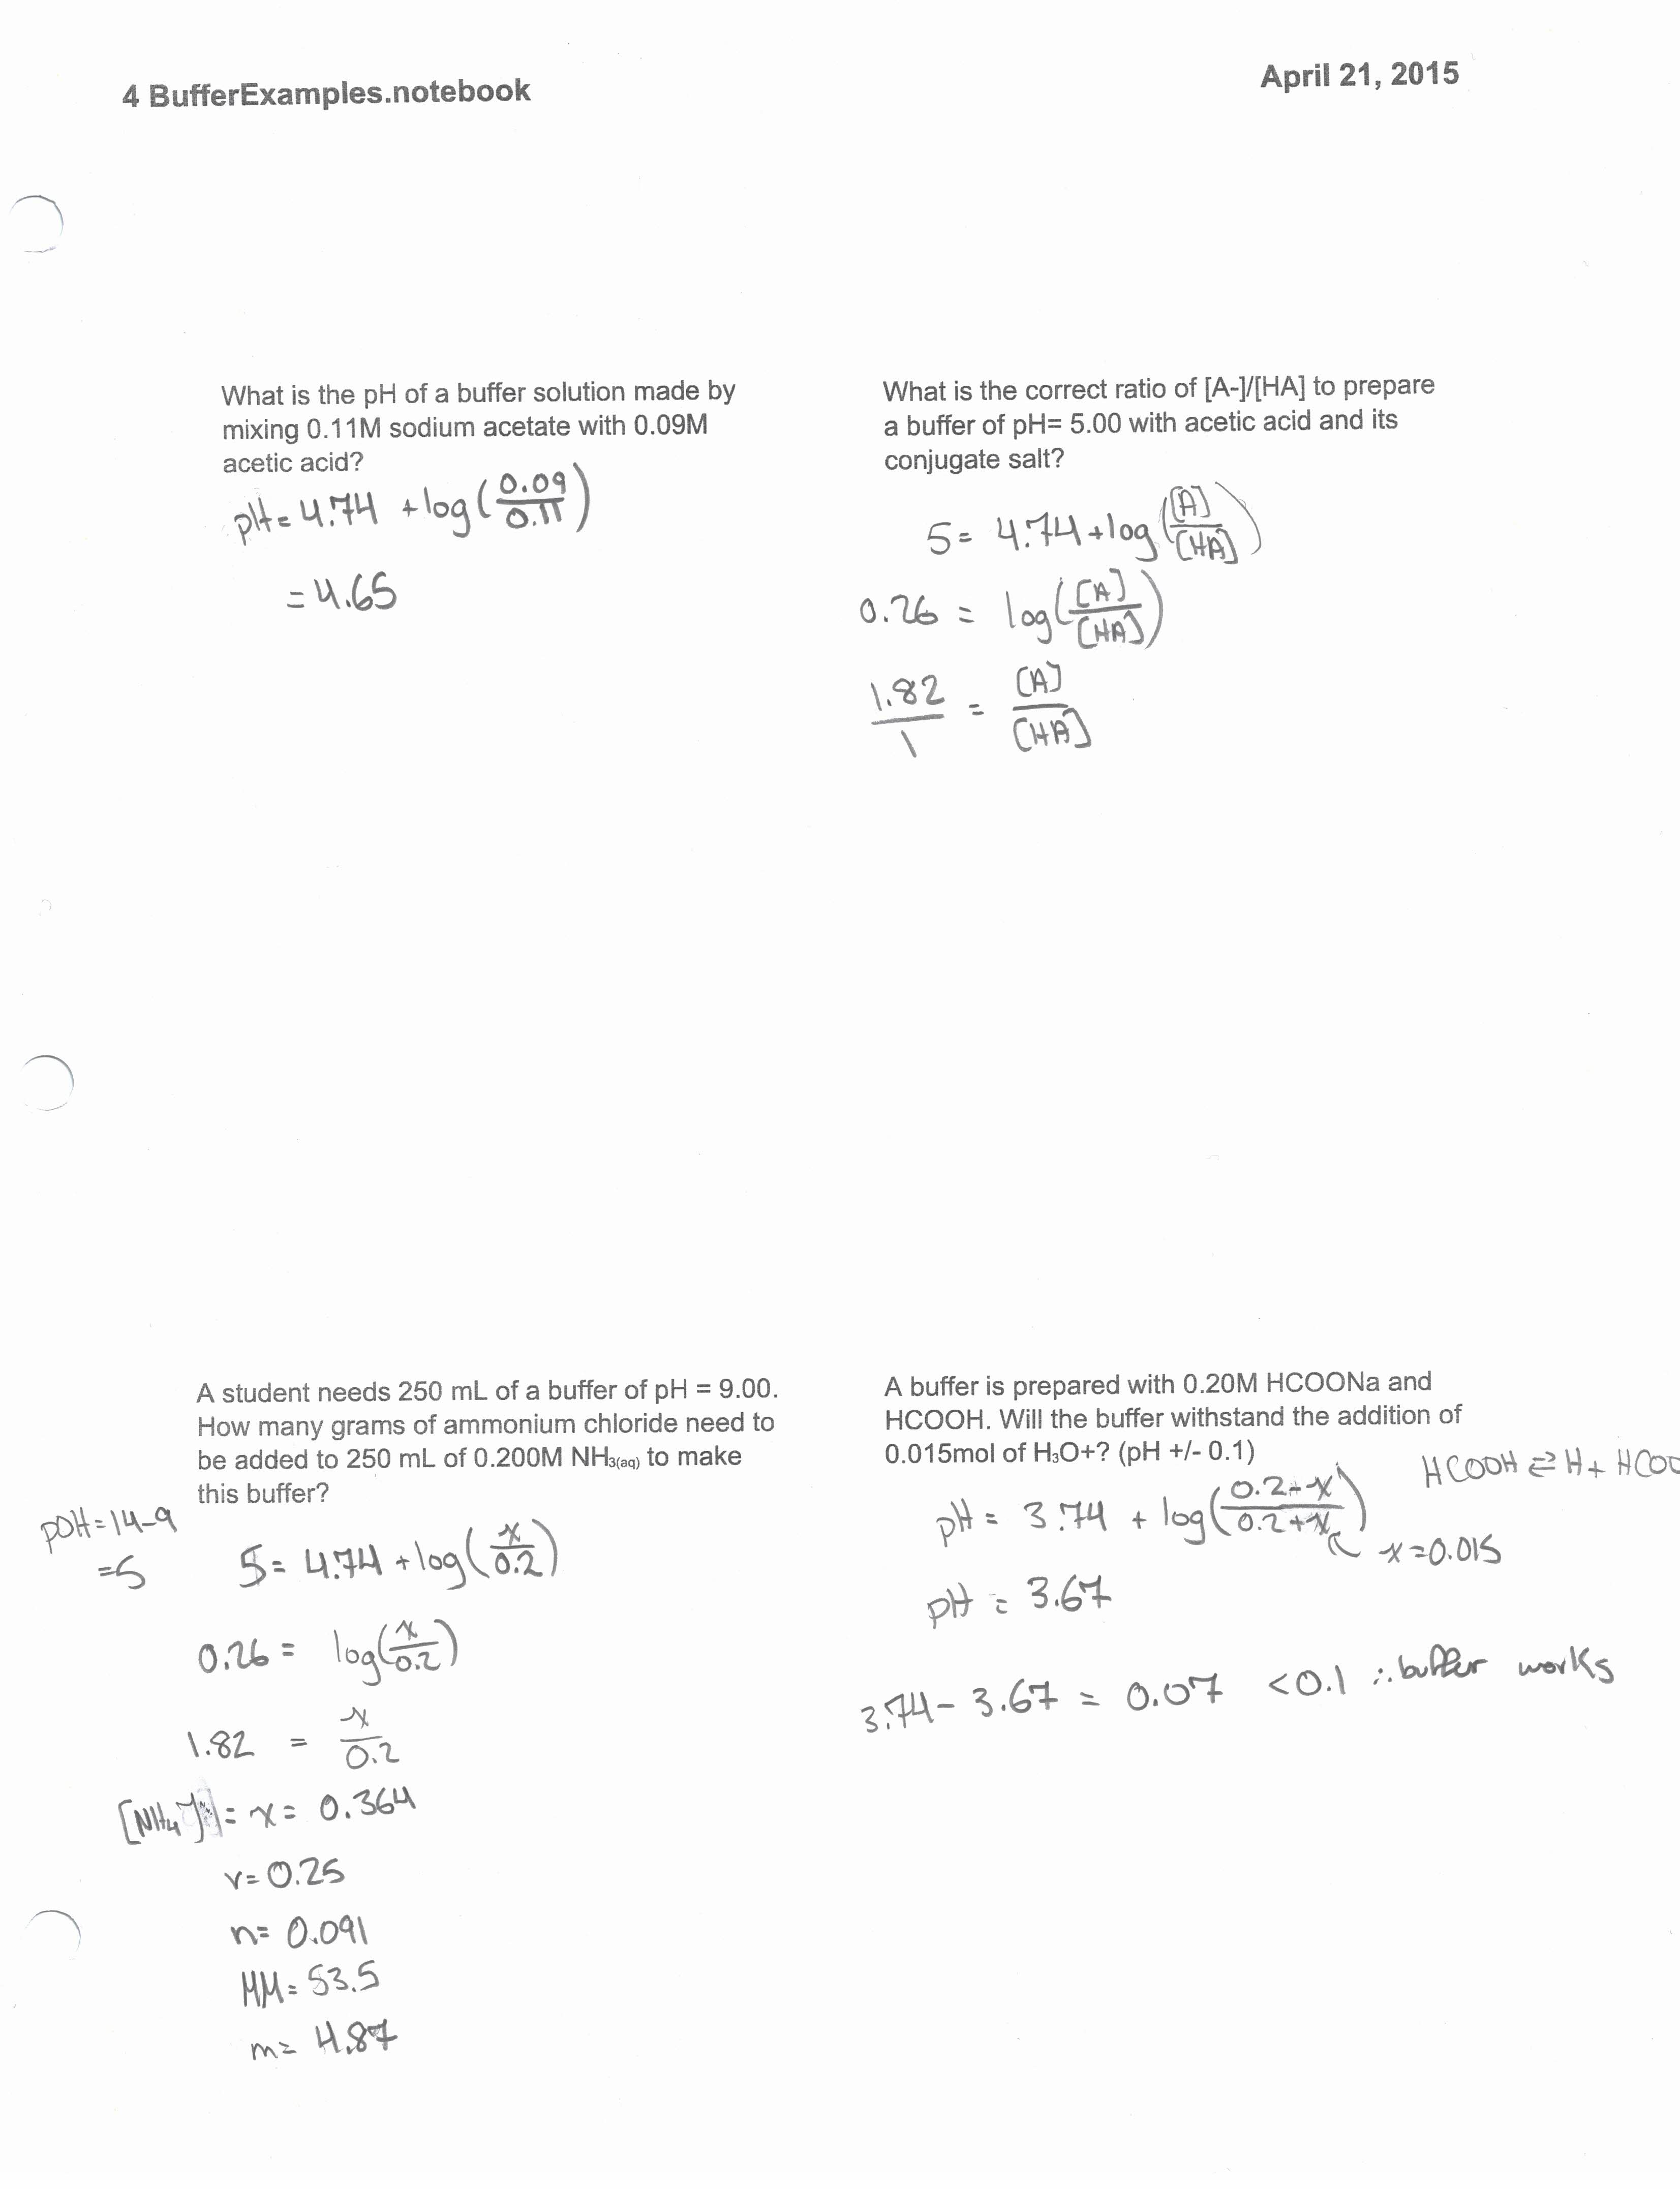 4 BufferExamples.notebook
April 21, 2015
What is the pH of a buffer solution made by
mixing 0.11M sodium acetate with 0.09M
acetic acid?
pH = 4.74 + log(0.09/0.11)
= 4.65
What is the correct ratio of [A-]/[HA] to prepare
a buffer of pH= 5.00 with acetic acid and its
conjugate salt?
5 = 4.74 + log([A]/[HA])
0.26 = log([A]/[HA])
1.82/1 = [A]/[HA]
A student needs 250 mL of a buffer of pH = 9.00.
How many grams of ammonium chloride need to
be added to 250 mL of 0.200M NH₃(aq) to make
this buffer?
pOH = 14-9
= 5
5 = 4.74 + log(x/0.2)
0.26 = log(x/0.2)
1.82 = x/0.2
[NH₄] = x = 0.364
v = 0.25
n = 0.091
MM = 53.5
m = 4.87
A buffer is prepared with 0.20M HCOONa and
HCOOH. Will the buffer withstand the addition of
0.015mol of H₃O+? (pH +/- 0.1)
HCOOH ⇌ H + HCOO
pH = 3.74 + log(0.2-x/0.2+x)
x = 0.015
pH = 3.67
3.74 - 3.67 = 0.07 < 0.1 ∴ buffer works